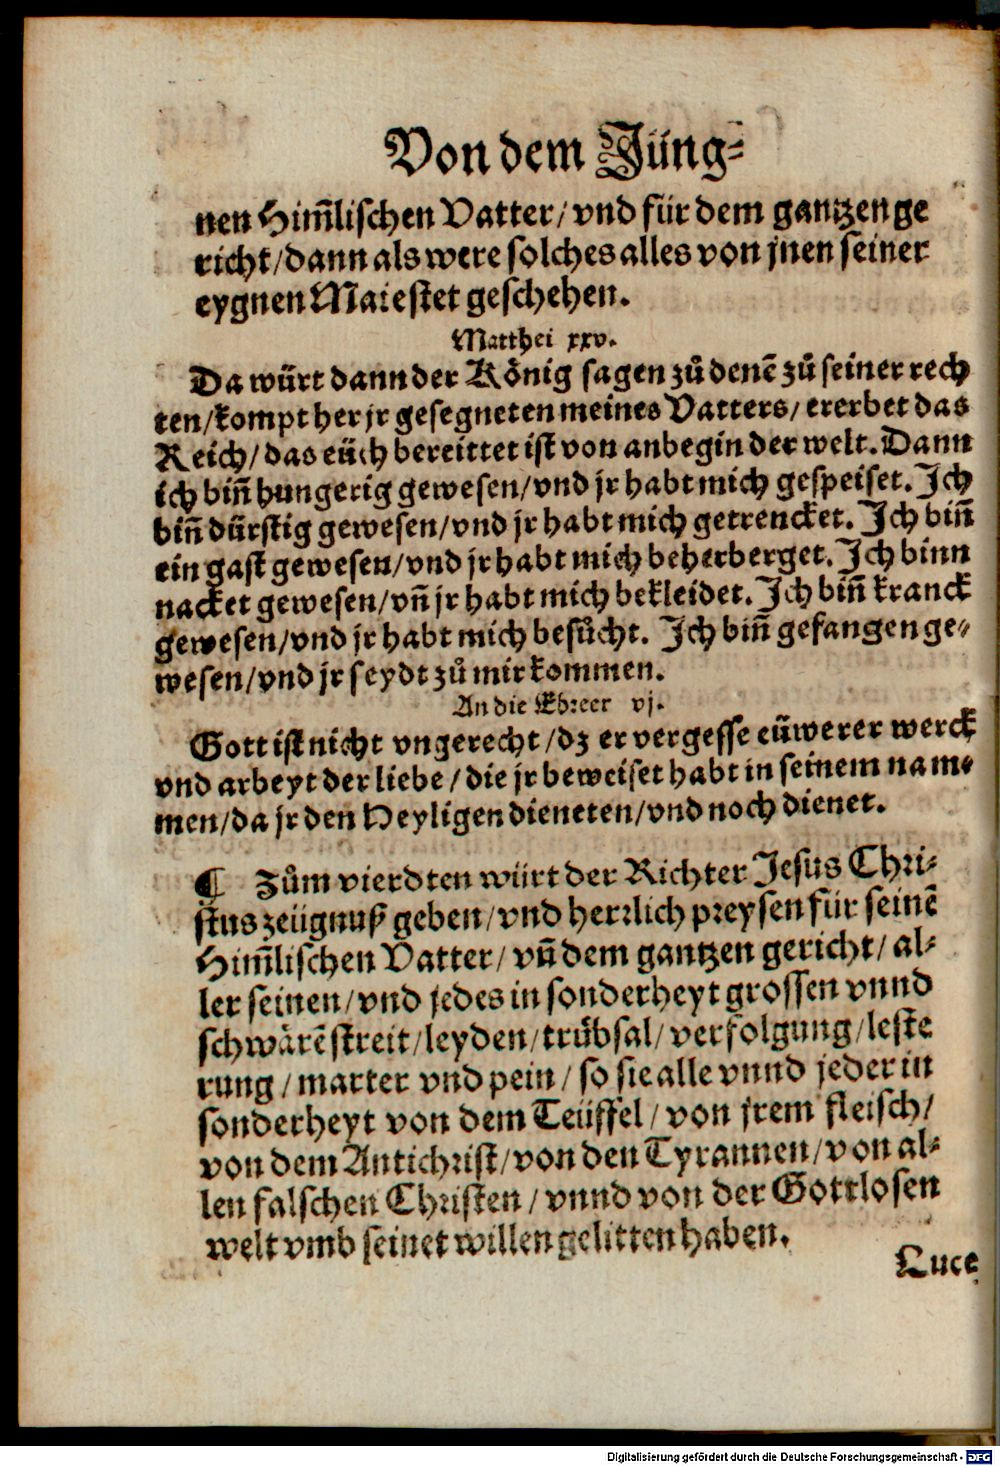 Von dem Jüng⸗
nen Him̃lischen Vatter/ vnd für dem gantzen ge
richt/ dann als were solches alles von jnen seiner
eygnen Maiestet geschehen.
Matthei xxv.
Da würt dann der König sagen zů denē zů seiner rech
ten/ kompt her jr gesegneten meines Vatters/ ererbet das
Reich/ das eüch bereittet ist von anbegin der welt. Dann
ich biñ hungerig gewesen/ vnd jr habt mich gespeiset. Ich
biñ dürstig gewesen/ vnd jr habt mich getrencket. Ich biñ
ein gast gewesen/ vnd jr habt mich beherberget. Ich binn
nacket gewesen/ vñ jr habt mich bekleidet. Ich biñ kranck
gewesen/ vnd jr habt mich besůcht. Ich biñ gefangen ge⸗
wesen/ vnd jr seydt zů mir kommen.
An die Ebreer vj.
Gott ist nicht vngerecht/ dz er vergesse eüwerer werck
vnd arbeyt der liebe/ die jr beweiset habt in seinem nam⸗
men/ da jr den Heyligen dieneten/ vnd noch dienet.
¶ Zům vierdten würt der Richter Jesus Chri⸗
stus zeügnuß geben/ vnd herrlich preysen für seinē
Him̃lischen Vatter/ vñ dem gantzen gericht/ al⸗
ler seinen/ vnd jedes in sonderheyt grossen vnnd
schwärē streit/ leyden/ trübsal/ verfolgung/ leste
rung/ marter vnd pein/ so sie alle vnnd jeder in
sonderheyt von dem Teüffel/ von jrem fleisch/
von dem Antichrist/ von den Tyrannen/ von al⸗
len falschen Christen/ vnnd von der Gottlosen
welt vmb seinet willen gelitten haben.
Luce
Digitalisierung gefördert durch die Deutsche Forschungsgemeinschaft - DFG